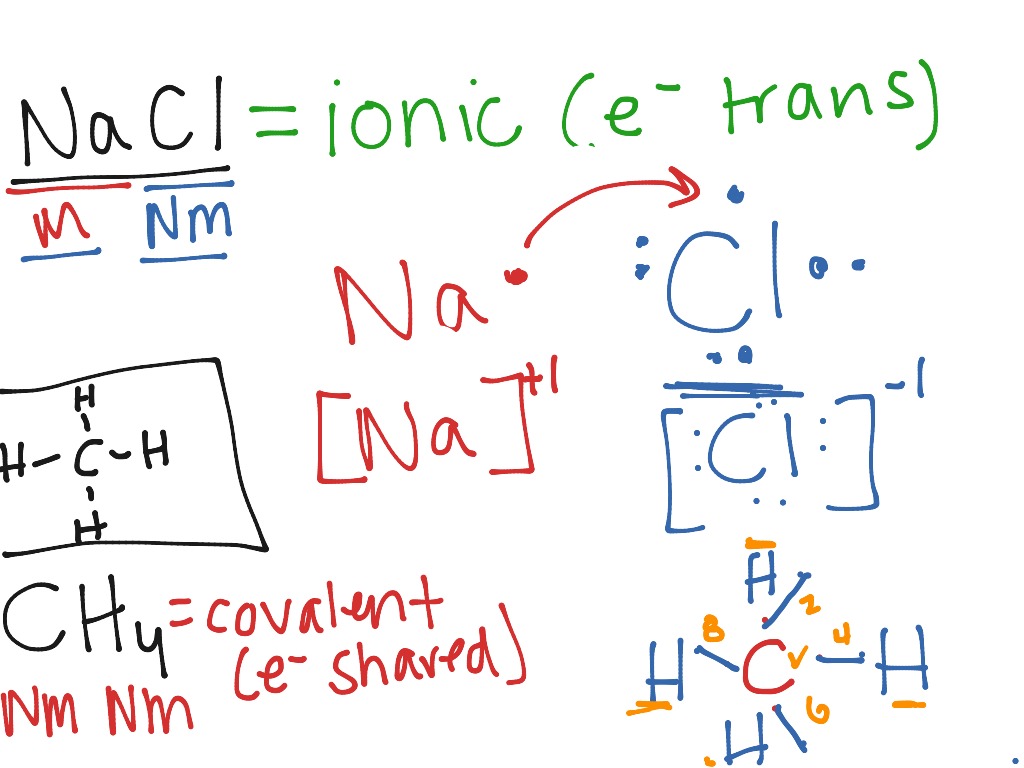 NaCl = ionic (e⁻ trans)
M Nm
Na Cl
[Na]+1 [Cl]-1
H
H-C-H
H
CH4 = covalent
(e⁻ shared)
Nm Nm
H
2
8 4
H C H
6
H